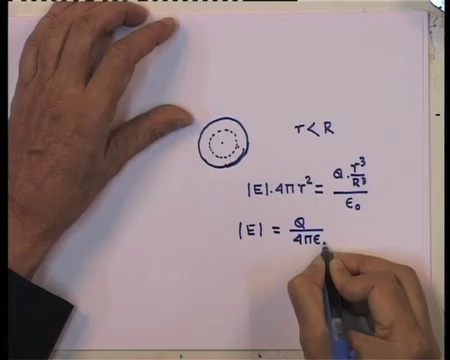 r < R
|E|.4πr² = Q.r³/R³ / ε₀
|E| = Q / 4πε